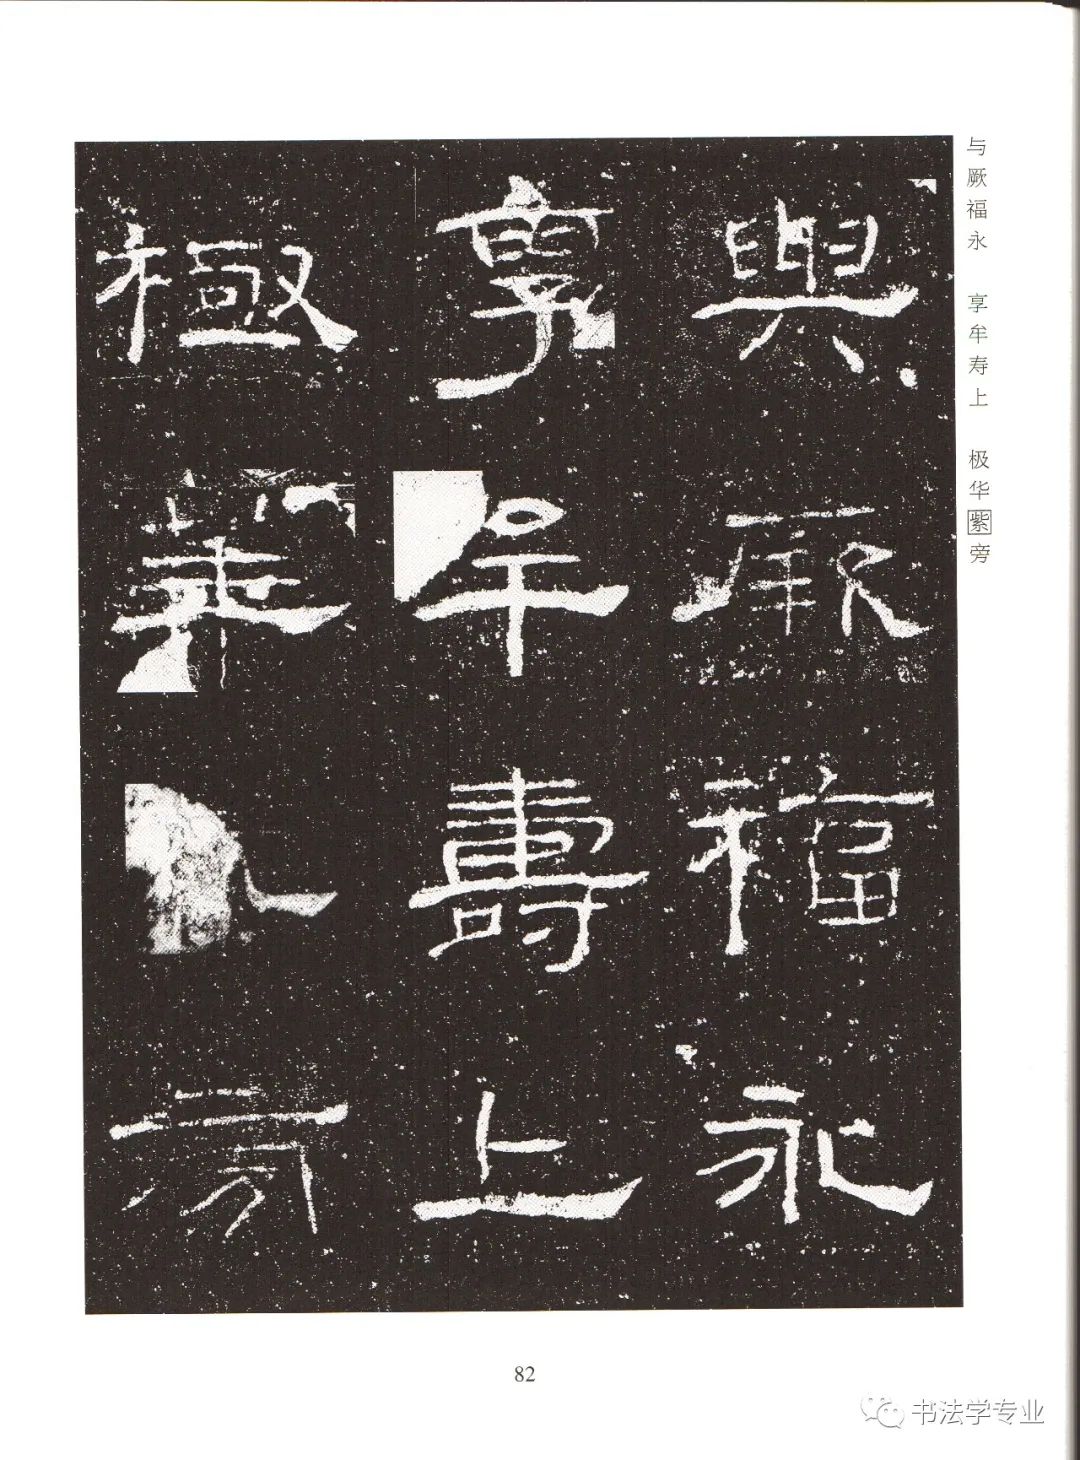 與厥福永
享牟壽上
極華
旁
与厥福永 享牟寿上 极华紫旁
82
书法学专业